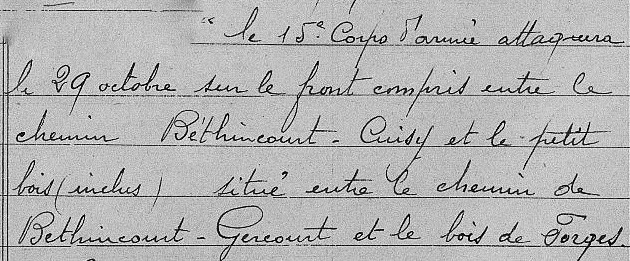 "le 15e Corps d'armée attaquera
le 29 octobre sur le front compris entre le
chemin Béthincourt - Cuisy et le petit
bois (inclus) situé entre le chemin de
Bethincourt - Gercourt et le bois de Forges.